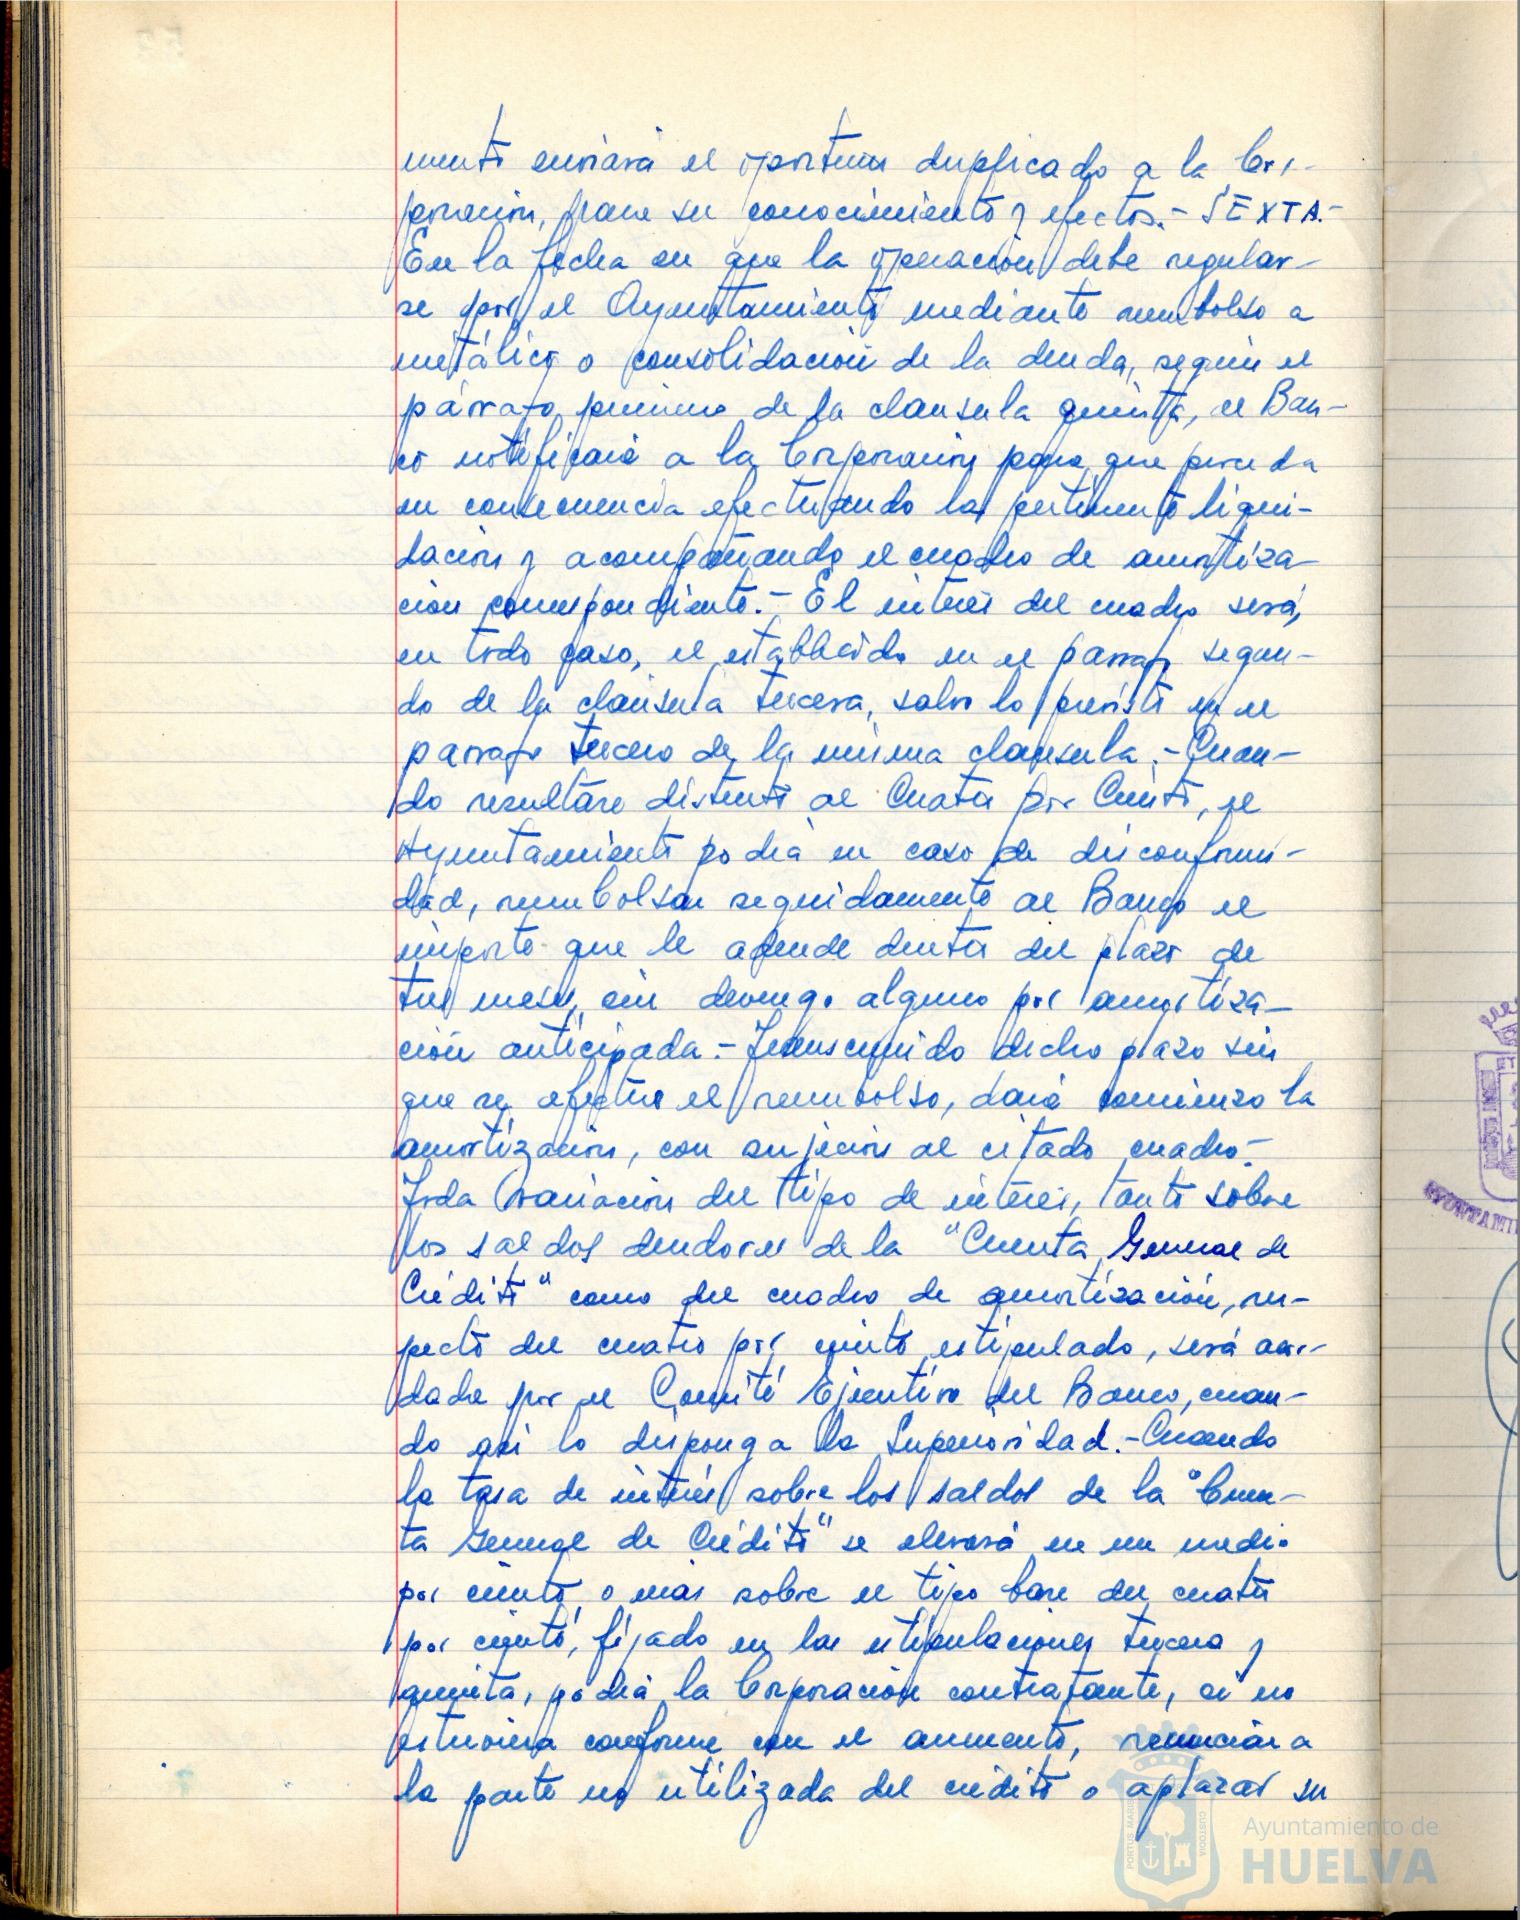 mento enviará el oportuno duplicado a la Cor-
poración, para su conocimiento y efectos.- SEXTA.-
En la fecha en que la operación debe regular-
se por el Ayuntamiento mediante reembolso a
metálico o consolidación de la deuda, según el
párrafo primero de la clausula quinta, el Ban-
co notificará a la Corporación para que proceda
en consecuencia efectuando la pertinente liqui-
dación y acompañando el cuadro de amortiza-
ción correspondiente.- El interés del cuadro será,
en todo caso, el establecido en el parrafo segun-
do de la clausula tercera, salvo lo previsto en el
parrafo tercero de la misma clausula.- Cuan-
do resultare distinto al Cuatro por Ciento, el
Ayuntamiento podrá en caso de disconformi-
dad, reembolsar seguidamente al Banco el
importe que le adeude dentro del plazo de
tres meses, sin devengo alguno por amortiza-
ción anticipada.- Transcurrido dicho plazo sin
que se efectue el reembolso, dará comienzo la
amortización, con sujeción al citado cuadro.-
Toda variación del tipo de interés, tanto sobre
los saldos deudores de la "Cuenta General de
Crédito" como del cuadro de amortización, res-
pecto del cuatro por ciento estipulado, será acor-
dada por el Comité Ejecutivo del Banco, cuan-
do asi lo disponga la Superioridad.- Cuando
la tasa de interés sobre los saldos de la "Cuen-
ta General de Crédito" se elevará en un medio
por ciento, o más sobre el tipo base del cuatro
por ciento, fijado en las estipulaciones tercera y
quinta, podrá la Corporación contratante, si no
estuviera conforme con el aumento, renunciar a
la parte no utilizada del crédito o aplazar su
AYUNTAMI
PORTUS MARIS
CUSTODIA
Ayuntamiento de
HUELVA